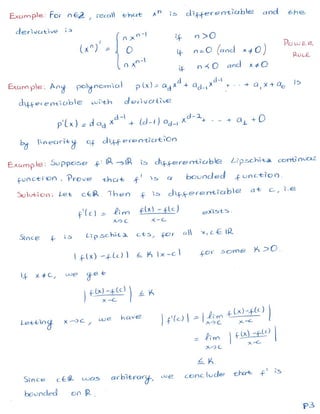 Example: For n∈Z, recall that xⁿ is differentiable and the
derivative is
(xⁿ)' = { n xⁿ⁻¹ if n>0
0 if n=0 (and x≠0)
n xⁿ⁻¹ if n<0 and x≠0
POWER RULE
Example: Any polynomial p(x) = a_d x^d + a_{d-1} x^{d-1} + ... + a_1 x + a_0 is
differentiable with derivative
p'(x) = d a_d x^{d-1} + (d-1) a_{d-1} x^{d-2} + ... + a_1 + 0
by linearity of differentiation
Example: Suppose f: R → R is differentiable Lipschitz continuous
function. Prove that f' is a bounded function.
Solution: Let c∈R. Then f is differentiable at c, i.e
f'(c) = lim_{x→c} (f(x) - f(c))/(x-c) exists.
Since f is Lipschitz cts, for all x, c ∈ R
|f(x) - f(c)| ≤ K |x-c| for some K>0.
If x≠c, we get
|(f(x) - f(c))/(x-c)| ≤ K
Letting x→c, we have |f'(c)| = |lim_{x→c} (f(x) - f(c))/(x-c)|
= lim_{x→c} |(f(x) - f(c))/(x-c)|
≤ K.
Since c∈R was arbitrary, we conclude that f' is
bounded on R.
P3